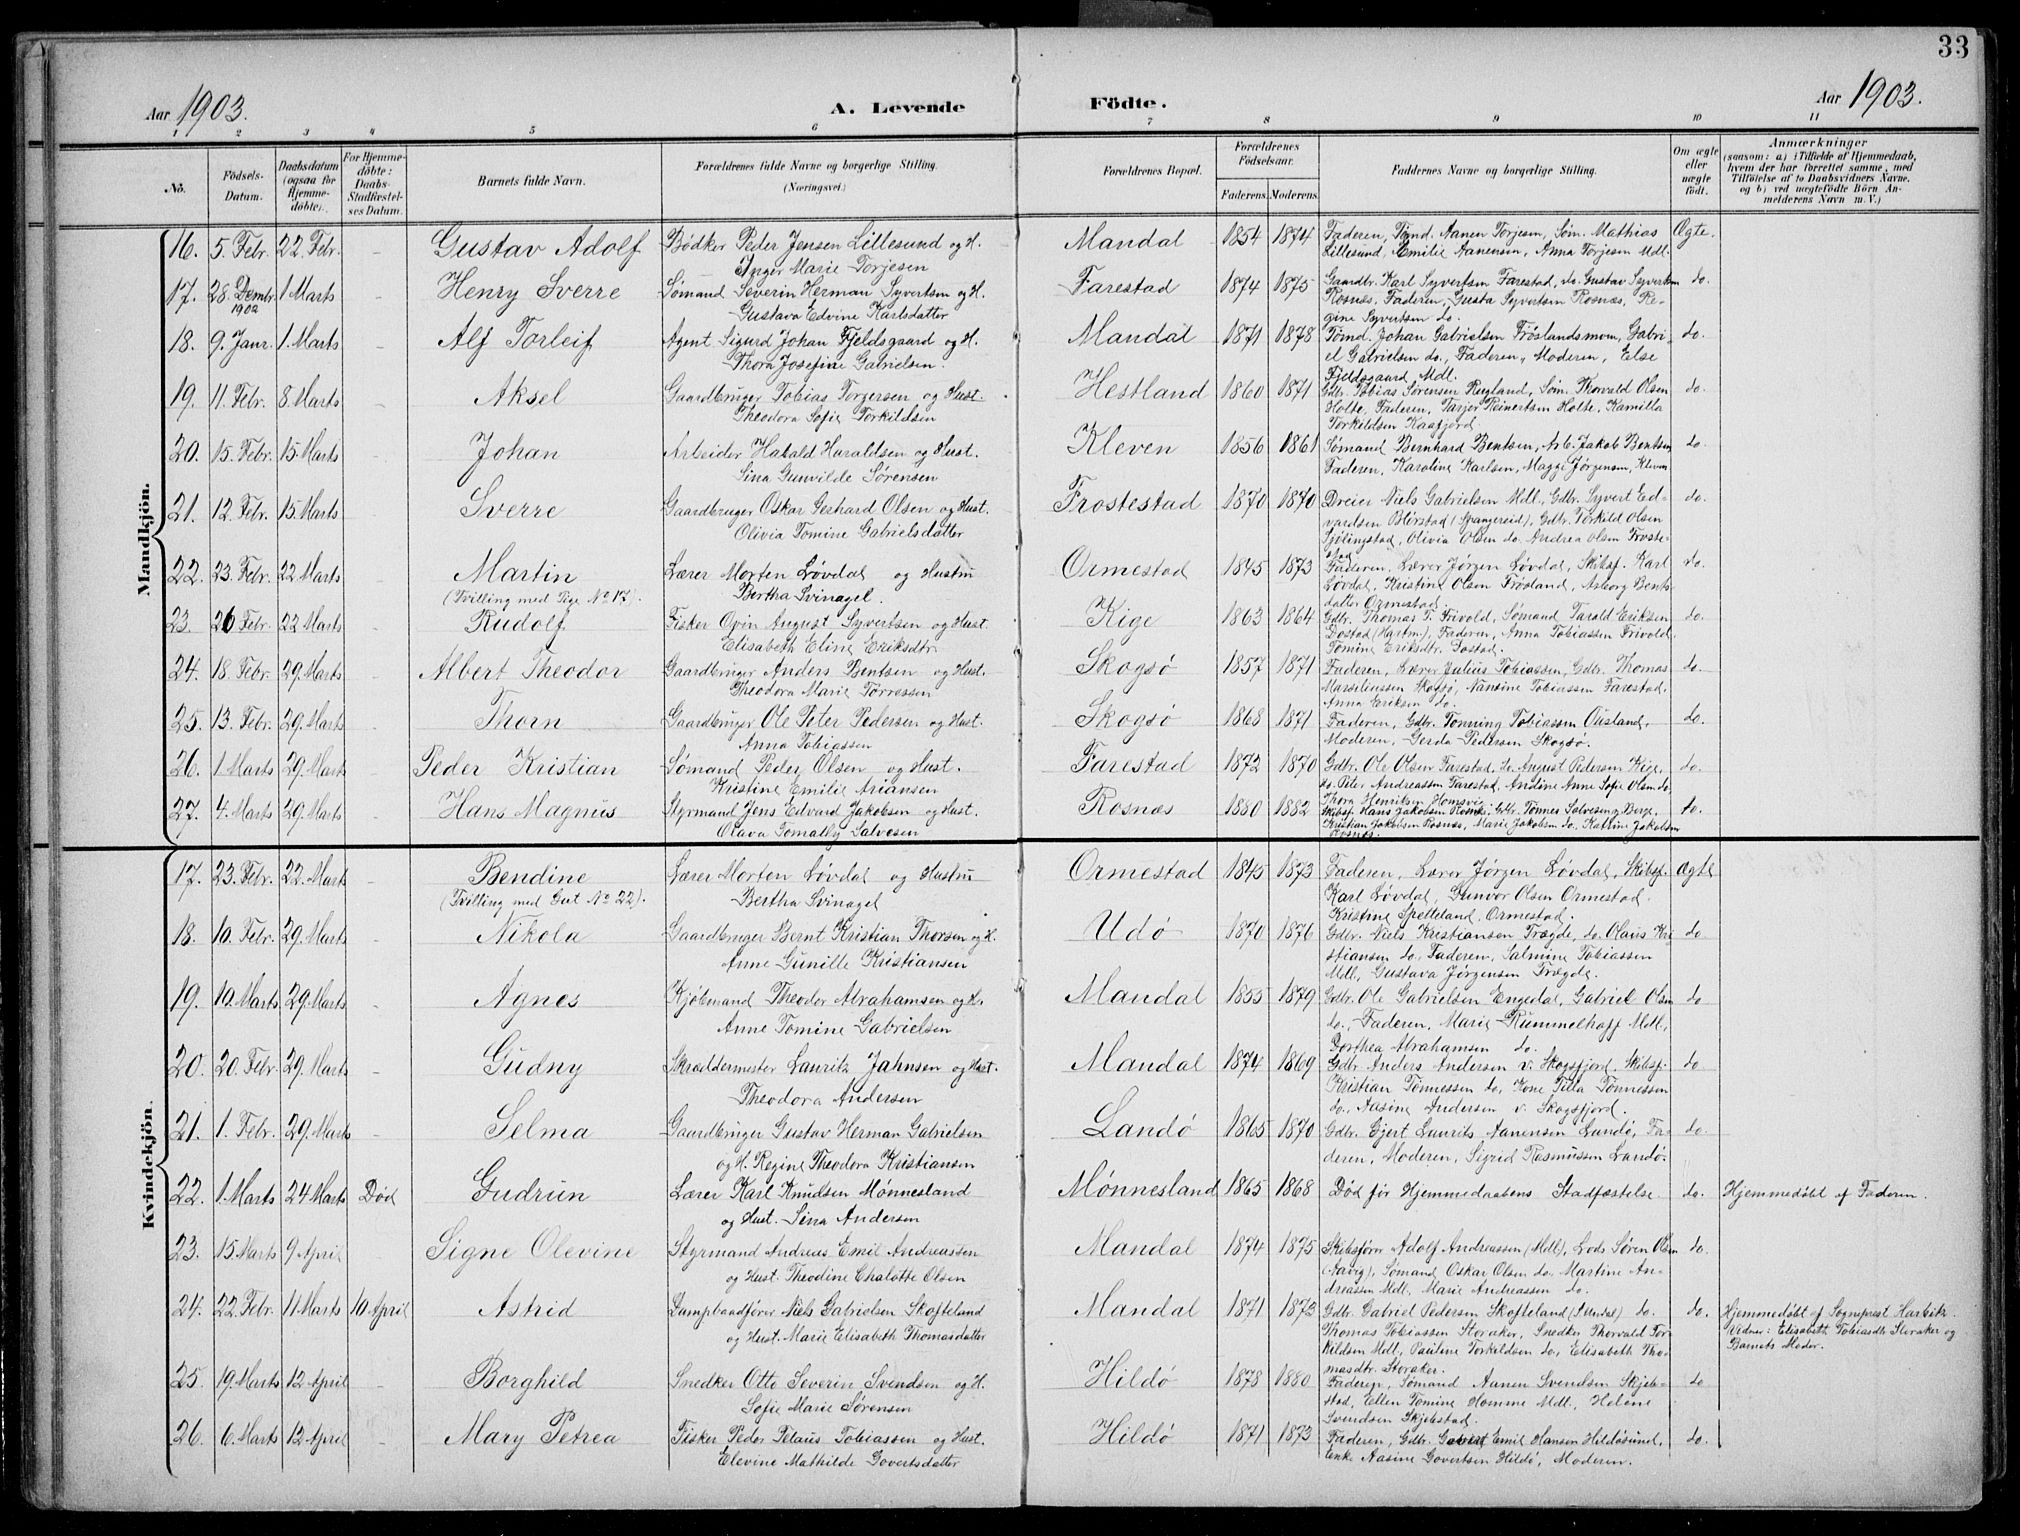 33
Aar 1903.
A. Levende Födte.
Aar 1903.
1 2 3 4 5 6 7 8 9 10 11
No.
Födsels-Datum.
Daabsdatum (ogsaa for Hjemmedöbte).
For Hjemmedöbte: Daabs-Stadfæstelses Datum.
Barnets fulde Navn.
Forældrenes fulde Navne og borgerlige Stilling. (Næringsvei.)
Forældrenes Bopæl.
Forældrenes Födselsaar.
Faderens. Moderens.
Faddernes Navne og borgerlige Stilling.
Om ægte eller uægte födt.
Anmærkninger
(saasom: a) i Tilfælde af Hjemmedaab, hvem der har forrettet samme, med Tilföielse af to Daabsvidners Navne, og b) ved uægtefödte Börn Anmelderens Navn m. V.)
Mandkjön.
16. 5. Febr. 22. Febr. - Gustav Adolf Bødker Peder Jensen Lillesund og H. Mandal 1854 1874 Faderen, Tømd. Aanen Torjesen, Søm. Mathias Ægte.
Inger Marie Torjesen Lillesund, Emilie Aanensen, Anna Torjesen Mdl.
17. 28. Dembr. 1902 1 Marts - Henry Sverre Sømand Severin Herman Syvertsen og H. Farestad 1874 1875 Gaardbr. Karl Syvertsen Farestad, do. Gustav Syvertsen do.
Gustava Edvine Karlsdatter Rosnæs, Faderen, Gusta Syvertsen Rosnæs, Re-
gine Syvertsen do.
18. 9. Janr. 1. Marts - Alf Torleif Agent Sigurd Johan Fjeldsgaard og H. Mandal 1871 1878 Tømd. Johan Gabrielsen Frøslandsmom, Gabri- do.
Thora Josefine Gabrielsen. el Gabrielsen do., Faderen, Moderen, Else
Fjeldsgaard Mdl.
19. 11. Febr. 8. Marts - Aksel Gaardbruger Tobias Torgersen og Hust. Hestland 1860 1871 Gdbr. Tobias Sørensen Rugland, Søm. Thorvald Olsen do.
Theodora Sofie Torkildsen Holte, Faderen, Tarjer Reinertsen Holte, Kamilla
Torkildsen Kaafjord
20. 15. Febr. 15. Marts - Johan Arbeider Harald Haraldsen og Hust. Kleven 1856 1861 Sømand Bernhard Bentsen, Arb. Jakob Bentsen do.
Sina Gunvilde Sørensen Faderen, Karoline Karlsen, Maggi Jørgensen, Kleven
21. 12. Febr. 15. Marts Sverre Gaardbruger Oskar Gerhard Olsen og Hust. Frostestad 1870 1870 Dreier Niels Gabrielsen Mdl., Gdbr. Syvert Ed- do.
Olivia Tomine Gabrielsdatter vardsen Blørstad (Spangereid), Gdbr. Torkild Olsen
Sjølingstad, Olivia Olsen do. Andrea Olsen Froste-
stad
22. 23. Febr. 22 Marts Martin Lærer Morten Løvdal og Hustru Ormestad 1845 1873 Faderen, Lærer Jørgen Løvdal, Skibsf. Karl do.
(Tvilling med Pige No 17). Bertha Svinagel. Løvdal, Kristine Olsen Frøsland, Asborg Bents-
datter Ormestad
23. 26 Febr. 22 Marts Rudolf Fisker Ovin August Syvertsen og Hust. Kige 1863 1864 Gdbr. Thomas T. Frivold, Sømand Tarald Eriksen do.
Elisabeth Eline Eriksdtr. Dostad (Hartm.), Faderen, Anna Tobiassen Frivold.
Tomine Eriksdtr. Dostad.
24. 18. Febr. 29. Marts Albert Theodor Gaardbruger Anders Bentsen og Hust. Skogsø 1857 1871 Faderen, Lærer Julius Tobiassen, Gdbr. Thomas do.
Theodora Marie Torressen Marseliussen Skogsø, Nansine Tobiassen Farestad,
Anna Eriksen do.
25. 13. Febr. 29. Marts Thorn Gaardbruger Ole Peter Pedersen og Hust. Skogsø 1868 1871 Faderen, Gdbr. Tønning Tobiassen Ousland, do.
Anna Tobiassen Moderen, Gerda Pedersen Skogsø.
26. 1. Marts 29. Marts Peder Kristian Sømand Peder Olsen og Hust. Farestad 1872 1870 Gdbr. Ole Olsen Farestad, do. August Pedersen Kige, do.
Kristine Emilie Ariansen do. Peter Andreassen Farestad, Andine Anne Sofie Olsen do.
Thora Henriksen Homsvig.
27. 4. Marts 29. Marts Hans Magnus Styrmand Jens Edvard Jakobsen og Hust. Rosnæs 1880 1882 Skibsf. Hans Jakobsen Rosnæs, Gdbr. Tønnes Salvesen Berge, do.
Olava Tomally Salvesen Kristian Jakobsen Rosnæs, Marie Jakobsen do. Katrine Jakobsen
Rosnæs.
Kvindekjön.
17. 23. Febr. 22. Marts - Bendine Lærer Morten Løvdal og Hustru Ormestad 1845 1873 Faderen, Lærer Jørgen Løvdal, Skibsf. Ægte
(Tvilling med Gut No 22). Bertha Svinagel Karl Løvdal, Gunvor Olsen Ormestad.
Kristine Spelleland, Ormestad.
18. 10. Febr. 29. Marts - Nikola Gaardbruger Bernt Kristian Thorsen og H. Udø 1870 1876 Gdbr. Niels Kristiansen Trægde, do. Olaus Kri- do
Anne Gunille Kristiansen stiansen do, Faderen, Salmine Tobiassen
Mdl., Gustava Jørgensen Trægde.
19. 10. Marts 29. Marts - Agnes Kjøbmand Theodor Abrahamsen og H. Mandal 1855 1879 Gdbr. Ole Gabrielsen Engedal, Gabriel Olsen do
Anne Tomine Gabrielsen do., Faderen, Marie Rummelhoff Mdl.,
Dorthea Abrahamsen do.
20. 20. Febr. 29. Marts - Gudny Skræddermester Lauritz Jahnsen og Hust. Mandal 1874 1869 Gdbr. Anders Andersen v. Skogsfjord, Skibsf. do
Theodora Andersen Kristian Tønnessen do, Kone Tilla Tønnessen
do., Aasine Andersen v. Skogsfjord.
21. 1. Febr. 29. Marts - Selma Gaardbruger Gustav Herman Gabrielsen Landø 1865 1870 Gdbr. Gjert Laurits Aanensen Landø, Fa- do.
og H. Regine Theodora Kristiansen deren, Moderen, Sigrid Rasmussen Landø.
22. 1. Marts 24 Marts Død Gudrun Lærer Karl Knudsen Mønnesland Mønnesland 1865 1868 Død før Hjemmedaabens Stadfæstelse. do. Hjemmedøbt af Faderen.
og Hust. Sina Andersen
23. 15. Marts 9 April Signe Olevine Styrmand Andreas Emil Andreassen Mandal 1874 1875 Skibsfører Adolf Andreassen (Mdl), Lods Søren Olsen do.
og Hust. Theodine Chalotte Olsen (Aavig), Sømand Oskar Olsen do. Martine An-
dreassen Mdl., Marie Andreassen do.
24. 22. Febr. 11. Marts 10. April Astrid Dampbaadfører Niels Gabrielsen Skofteland Mandal 1871 1873 Gdbr. Gabriel Pedersen Skofteland (S. Undal) do. do. Hjemmedøbt af Sogneprest Harbitz.
og Hust. Marie Elisabeth Thomasdatter Thomas Tobiassen Storaker, Snedker Thorvald Tor- Vidner: Elisabeth Tobiasdtr Storaker og
kildsen Mdl., Pauline Torkildsen do, Elisabeth Tho- Barnets Moder.
masdtr. Storaker.
25. 19. Marts 12 April Borghild Snedker Otto Severin Svendsen og H. Hildø 1878 1880 Faderen, Sømand Aanen Svendsen Skjeb- do
Sofie Marie Sørensen stad, Ellen Tomine Homme Mdl., Helene
Svendsen Skjebstad.
26. 6. Marts 12 April Mary Petrea Fisker Peder Pelaus Tobiassen og Hust. Hildø 1871 1873 Faderen, Gdbr. Govert Emil Hansen Hildøsund, do.
Elevine Mathilde Govertsdatter Enke Aasine Govertsen Hildø, Moderen.